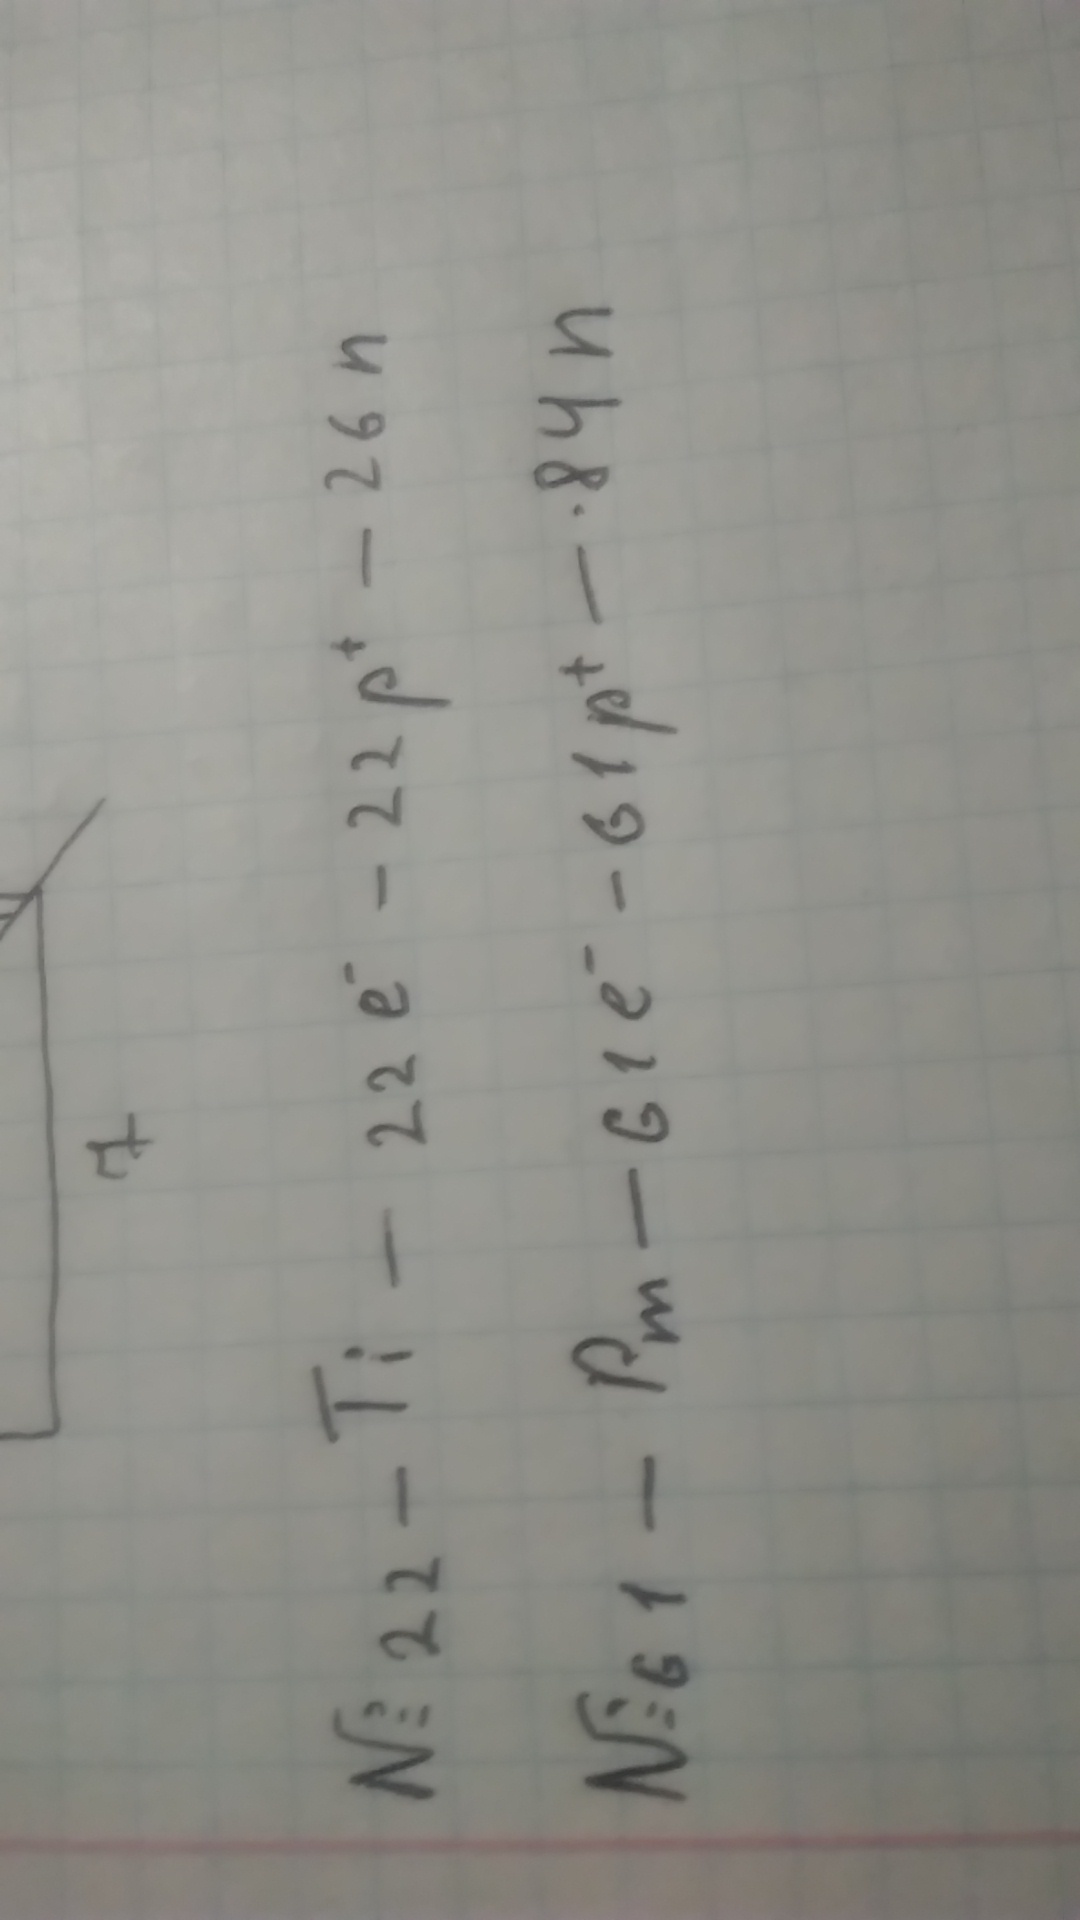 7
№ 22 - Ti - 22e⁻ - 22p⁺ - 26n
№ 61 - Pm - 61e⁻ - 61p⁺ - 84n